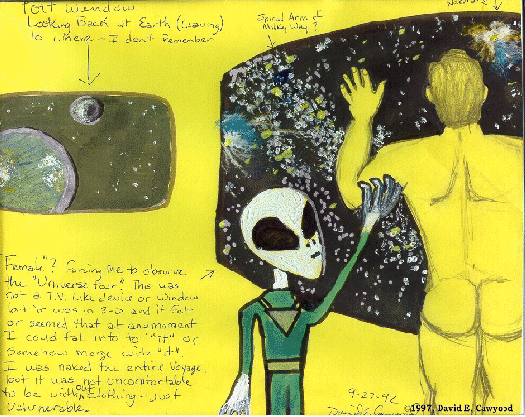 Port Window
Looking Back at Earth (Leaving)
to where - I don't Remember
Spiral Arm of
Milky Way?
Female? Forcing me to observe
the "Universe four". This was
not a T.V. like device or window
but it was in 3-D and it felt
or seemed that at any moment
I could fall into to "it" or
somehow merge with "it"
I was naked the entire Voyage,
but it was not uncomfortable
to be without clothing - just
vulnerable.
9-27-92
1997, David E. Cawyood